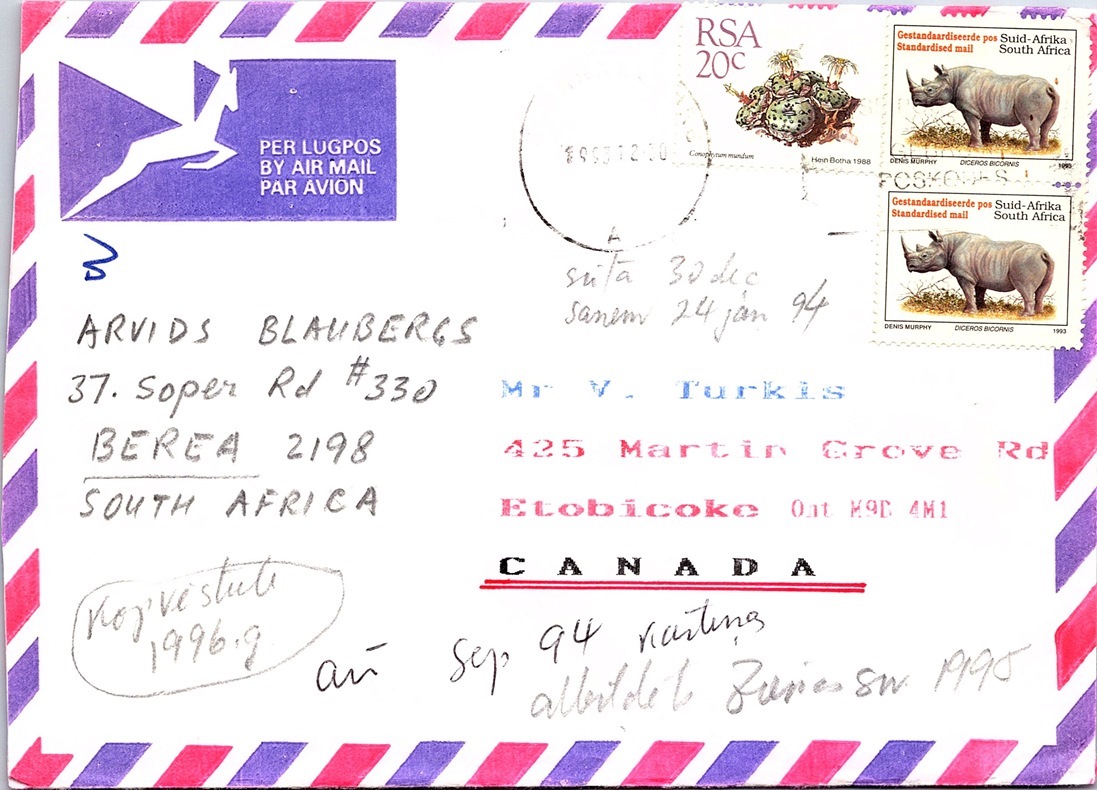 RSA
20c
Conophytum mundum
Hein Botha 1988
Gestandaardiseerde pos Suid-Afrika
Standardised mail South Africa
DENIS MURPHY DICEROS BICORNIS 1993
Gestandaardiseerde pos Suid-Afrika
Standardised mail South Africa
DENIS MURPHY DICEROS BICORNIS 1993
PER LUGPOS
BY AIR MAIL
PAR AVION
1993 12 30
A
sūta 30 dec
saņem 24 jan 94
ARVIDS BLAUBERGS
37. Soper Rd #330
BEREA 2198
SOUTH AFRICA
Mr V. Turkis
425 Martin Grove Rd
Etobicoke Ont
4M1
CANADA
1996.g
arī Sep 94 kartiņa
1995